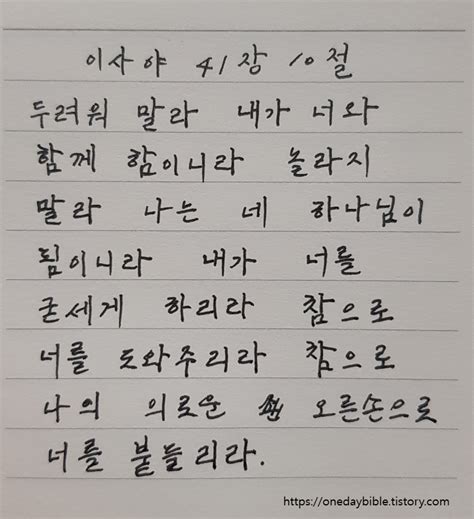 이사야 41장 10절
두려워 말라 내가 너와
함께 함이니라 놀라지
말라 나는 네 하나님이
됨이니라 내가 너를
굳세게 하리라 참으로
너를 도와주리라 참으로
나의 의로운 오른손으로
너를 붙들리라.
https://onedaybible.tistory.com